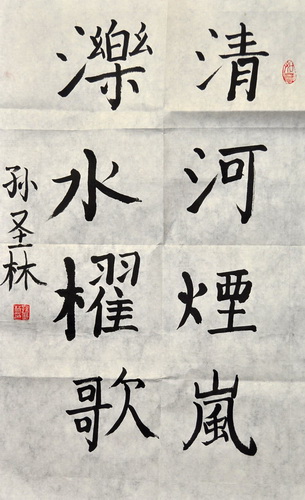 清河煙嵐
濼水櫂歌
孙圣林